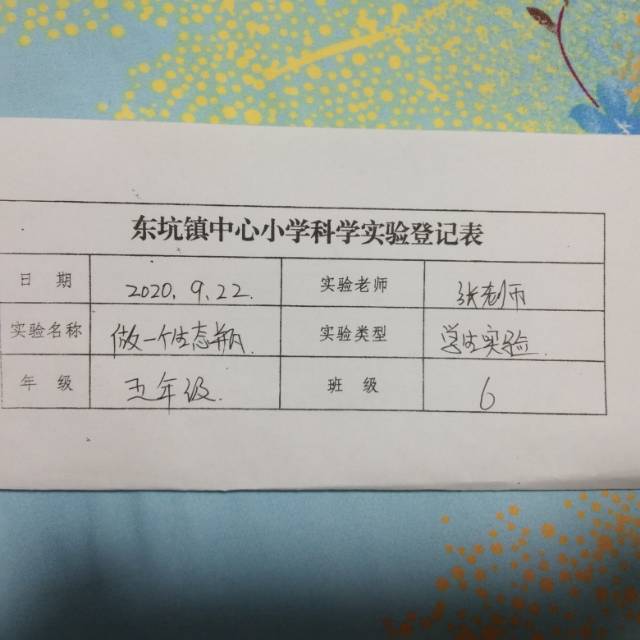 东坑镇中心小学科学实验登记表
日期 2020.9.22. 实验老师 张老师
实验名称 做一个生态瓶. 实验类型 学生实验.
年级 五年级. 班级 6